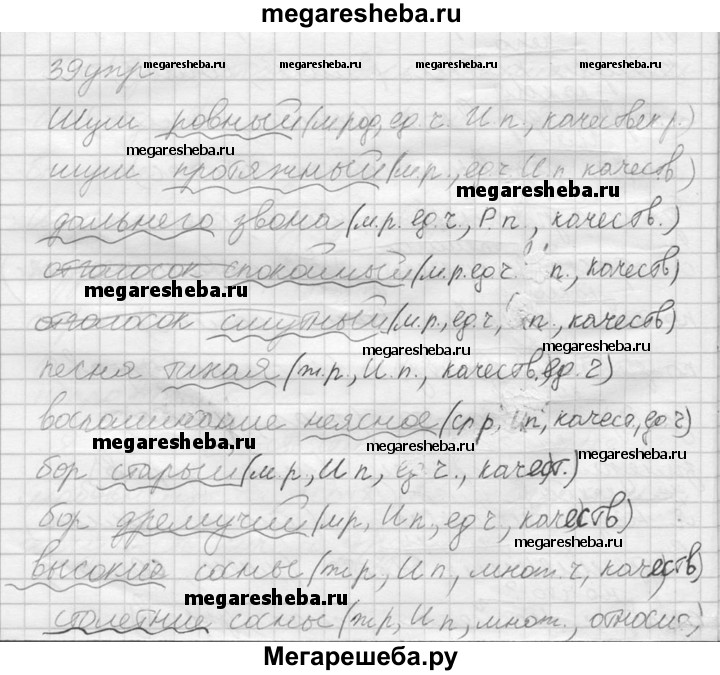 megaresheba.ru
39упр
megaresheba.ru megaresheba.ru megaresheba.ru megaresheba.ru
Шум ровный (м.род, ед.ч. И.п., качеств)
megaresheba.ru
шум протяжный (м.р., ед.ч. И.п. качеств)
megaresheba.ru
дальнего звона (м.р. ед.ч, Р.п., качеств.)
отголосок спокойный (м.р. ед.ч п., качеств)
megaresheba.ru
отголосок смутный (м.р., ед.ч, п., качеств)
megaresheba.ru megaresheba.ru
песня тихая (ж.р., И.п., качеств. ед.ч)
воспоминание неясное (ср.р, И.п, качест, ед.ч)
megaresheba.ru megaresheba.ru
бор старый (м.р, И.п, ед.ч., качест.)
бор дремучий (м.р, И.п, ед.ч, качеств)
megaresheba.ru
высокие сосны (ж.р, И.п, множ.ч, качеств)
megaresheba.ru
столетние сосны (ж.р, И.п, множ., относ)
Мегарешеба.ру